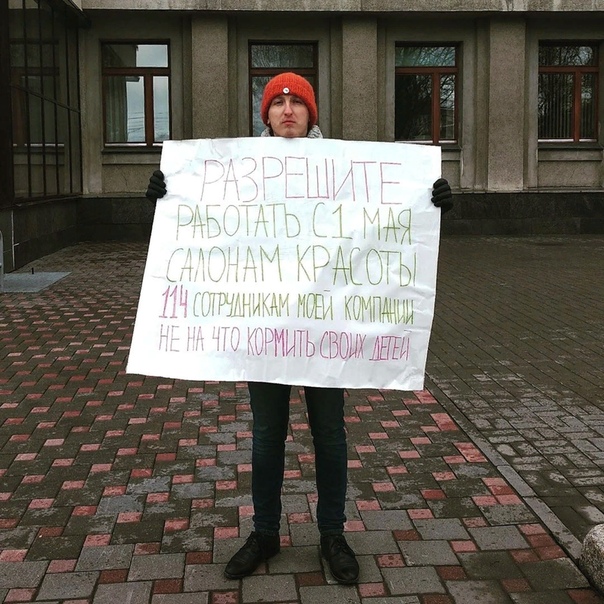 РАЗРЕШИТЕ
РАБОТАТЬ С 1 МАЯ
САЛОНАМ КРАСОТЫ
114 СОТРУДНИКАМ МОЕЙ КОМПАНИИ
НЕ НА ЧТО КОРМИТЬ СВОИХ ДЕТЕЙ